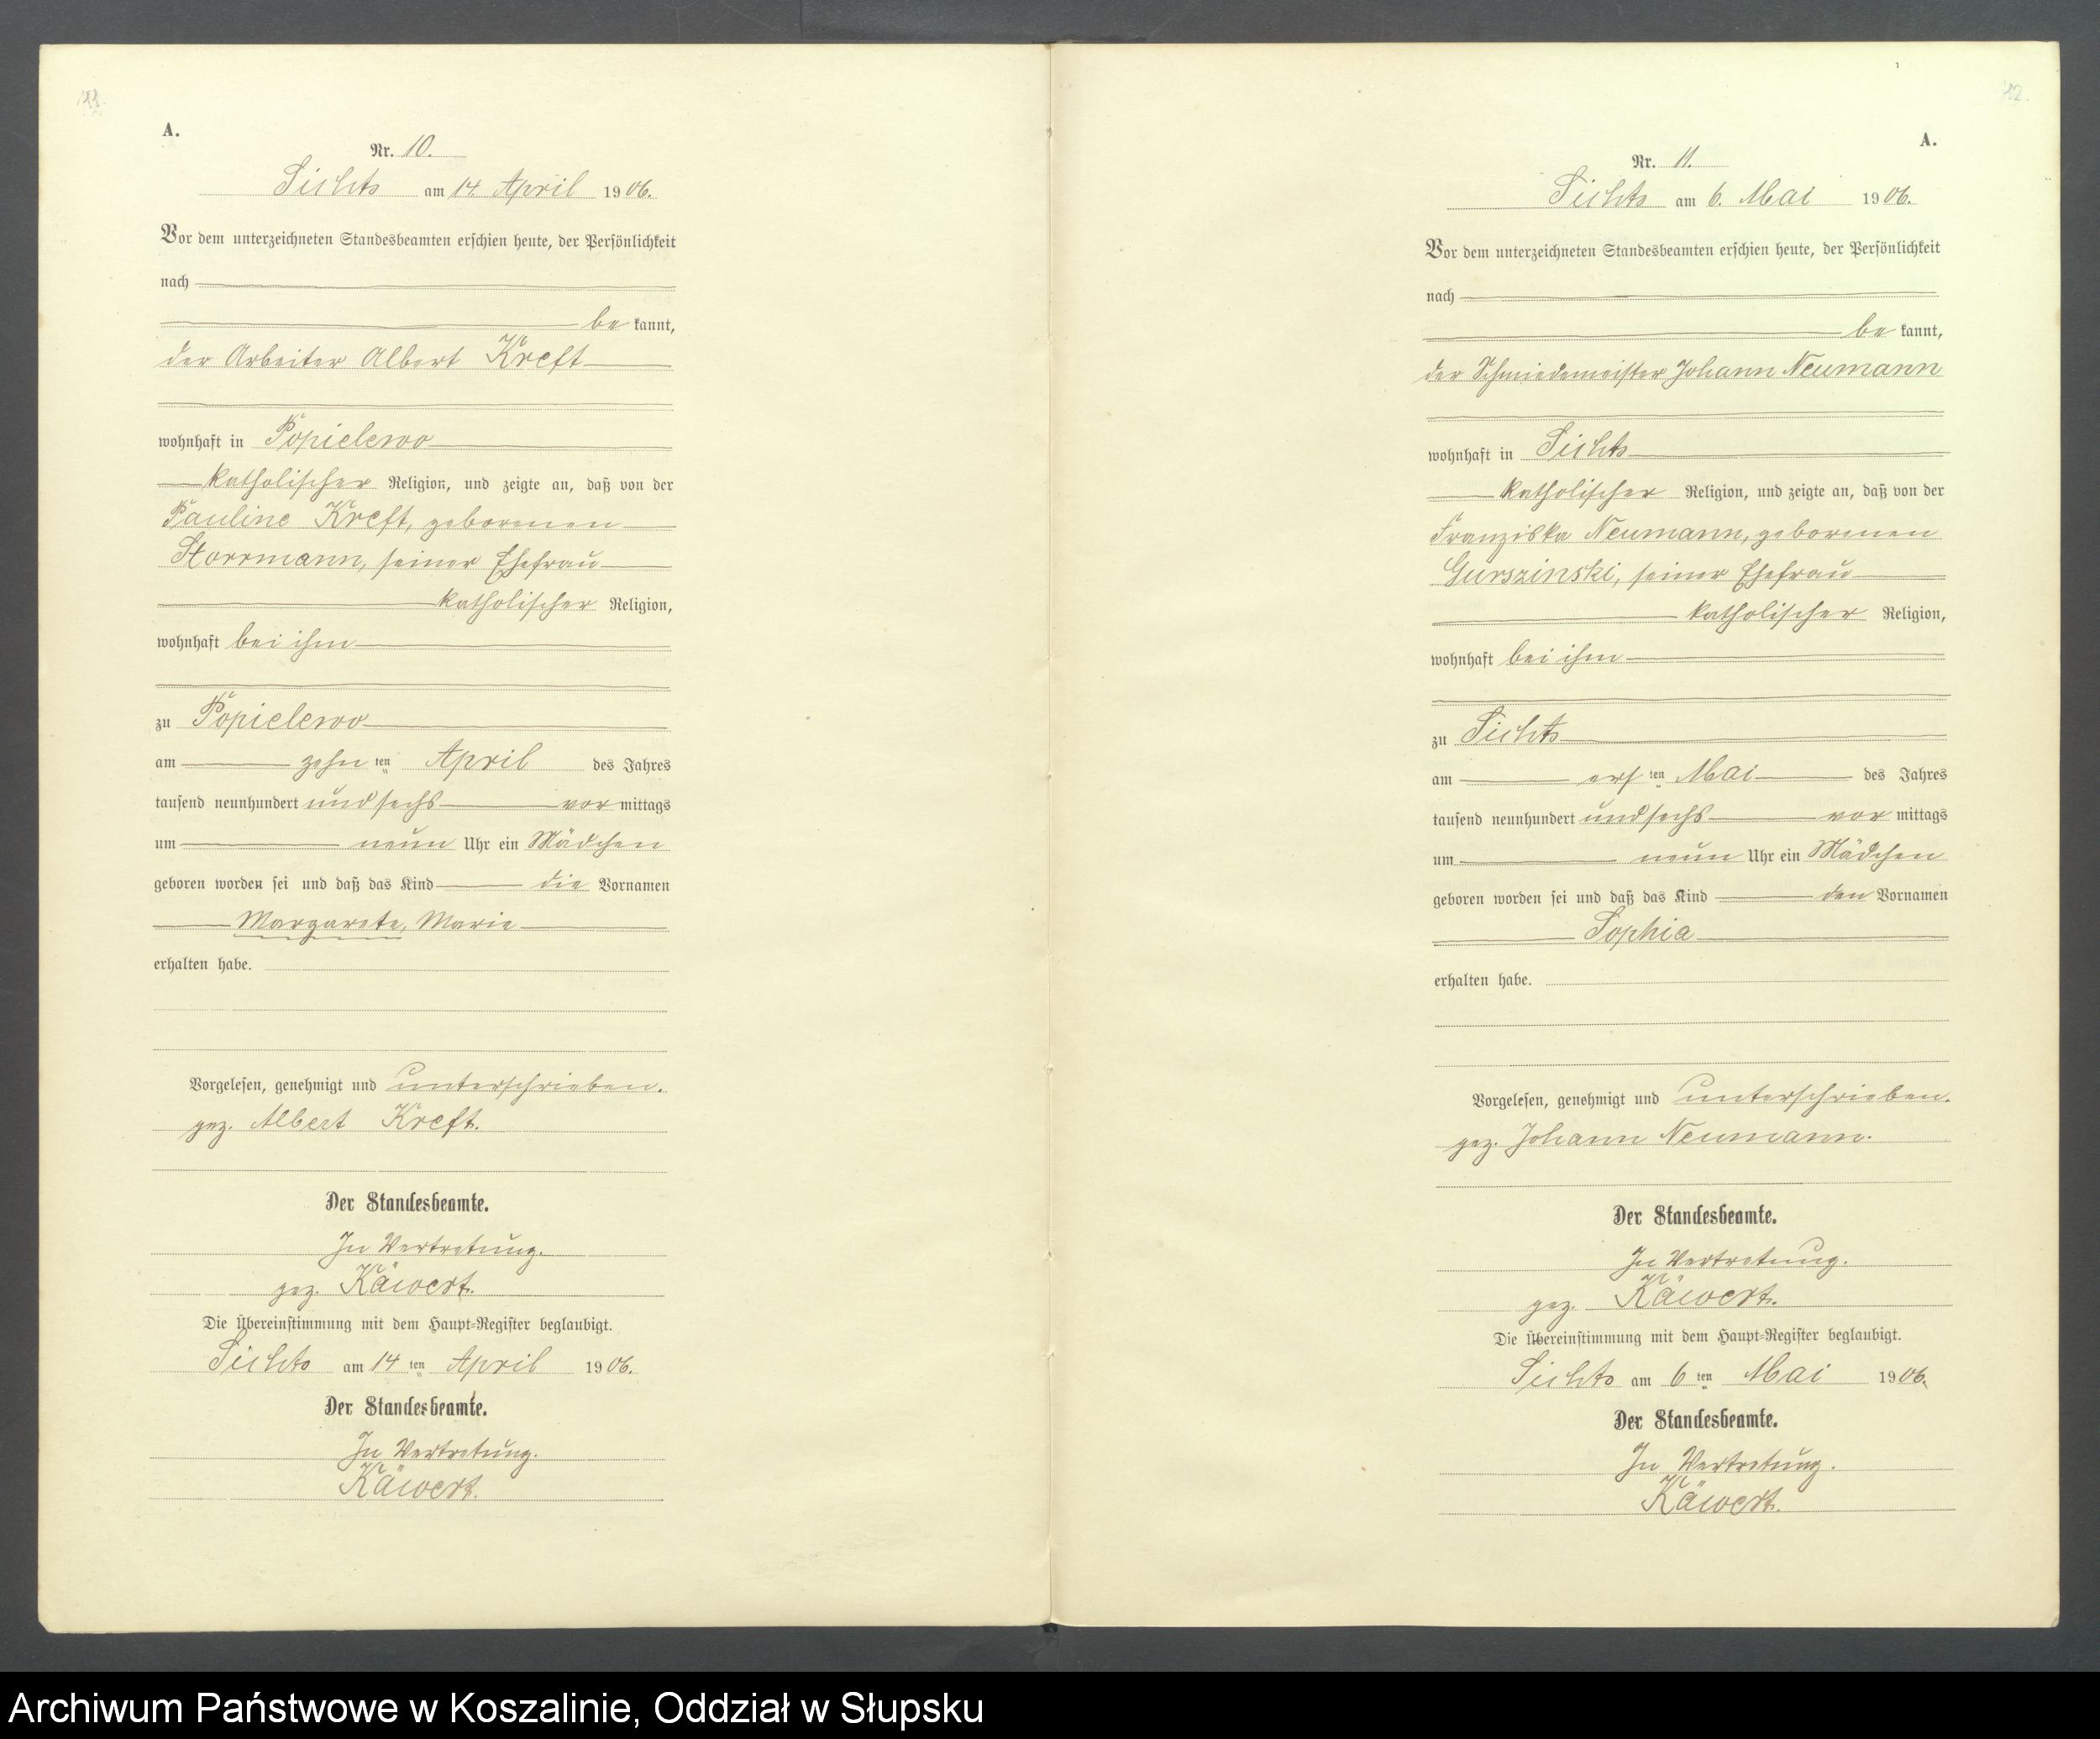 A.
Nr. 10.
Sichts am 14. April 1906.
Vor dem unterzeichneten Standesbeamten erschien heute, der Persönlichkeit
nach
be kannt,
der Arbeiter Albert Kreft
wohnhaft in Popielewo
katholischer Religion, und zeigte an, daß von der
Pauline Kreft, geborenen
Storrmann, seiner Ehefrau
katholischer Religion,
wohnhaft bei ihm
zu Popielewo
am zehn ten April des Jahres
tausend neunhundert und sechs vor mittags
um neun Uhr ein Mädchen
geboren worden sei und daß das Kind die Vornamen
Margarete, Marie
erhalten habe.
Vorgelesen, genehmigt und unterschrieben.
gez. Albert Kreft.
Der Standesbeamte.
In Vertretung.
gez. Käwert.
Die Übereinstimmung mit dem Haupt-Register beglaubigt.
Sichts am 14 ten April 1906.
Der Standesbeamte.
In Vertretung.
Käwert.
42.
A.
Nr. 11.
Sichts am 6. Mai 1906.
Vor dem unterzeichneten Standesbeamten erschien heute, der Persönlichkeit
nach
be kannt,
der Schmiedemeister Johann Neumann
wohnhaft in Sichts
katholischer Religion, und zeigte an, daß von der
Franziska Neumann, geborenen
Gurszinski, seiner Ehefrau
katholischer Religion,
wohnhaft bei ihm
zu Sichts
am ers ten Mai des Jahres
tausend neunhundert und sechs vor mittags
um neun Uhr ein Mädchen
geboren worden sei und daß das Kind den Vornamen
Sophia
erhalten habe.
Vorgelesen, genehmigt und unterschrieben.
gez. Johann Neumann.
Der Standesbeamte.
In Vertretung.
gez. Käwert.
Die Übereinstimmung mit dem Haupt-Register beglaubigt.
Sichts am 6 ten Mai 1906.
Der Standesbeamte.
In Vertretung.
Käwert.
Archiwum Państwowe w Koszalinie, Oddział w Słupsku